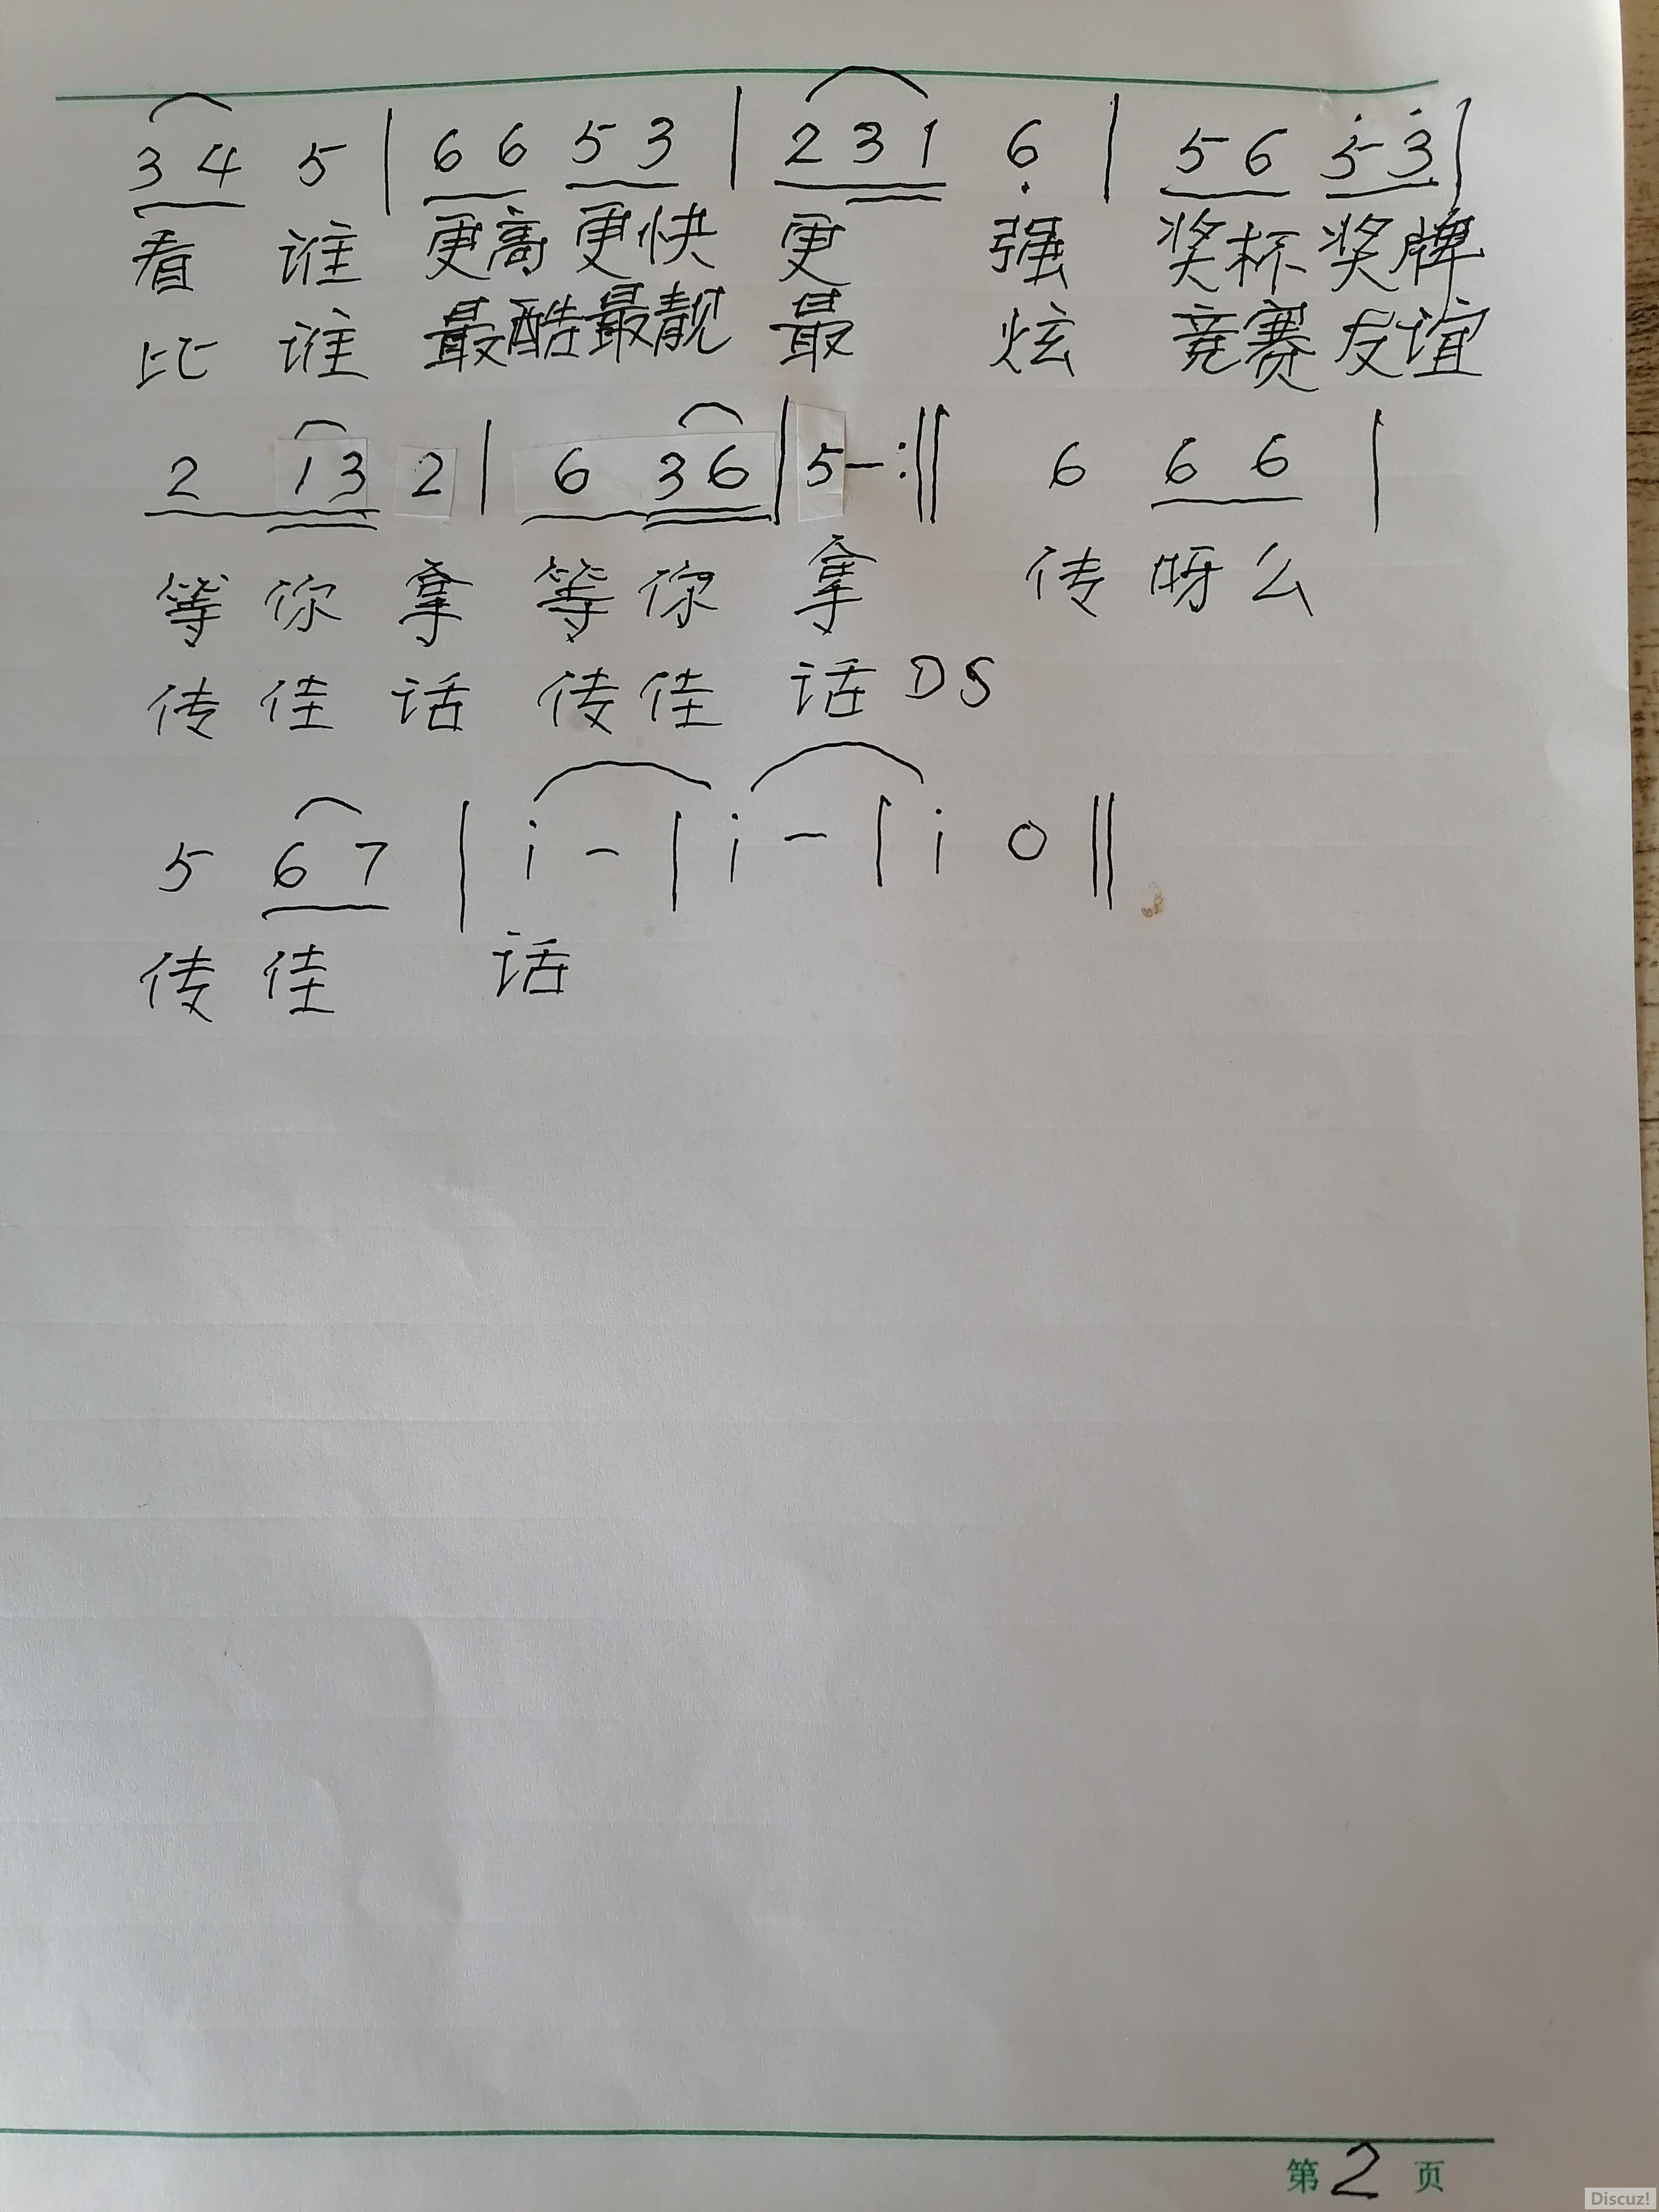 3 4 5 | 6 6 5 3 | 2 3 1 6̣ | 5 6 5̇ 3̇ |
看 谁 更高更快 更 强 奖杯奖牌
比 谁 最酷最靓 最 炫 竞赛友谊
2 1 3 2 | 6 3 6 | 5 - :‖ 6 6 6 |
等 你 拿 等 你 拿 传 呀 么
传 佳 话 传 佳 话 DS
5 6 7 | i - | i - | i 0 ‖
传 佳 话
第 2 页
Discuz!